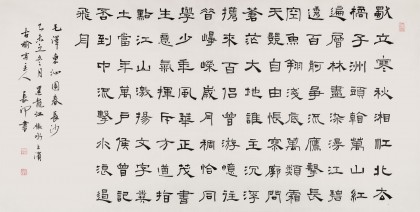 獨立寒秋湘江北去
橘子洲頭看萬山紅
遍層林盡染漫江碧
透百舸爭流鷹擊長
空魚翔淺底萬類霜
天競自由悵寥廓問
蒼茫大地誰主沉浮
攜來百侶曾遊憶往
昔崢嶸歲月稠恰同
學少年風華正茂書
生意氣揮斥方遒指
點江山激揚文字糞
土當年萬戶侯曾記
否到中流擊水浪遏
飛舟
毛澤東沁園春長沙